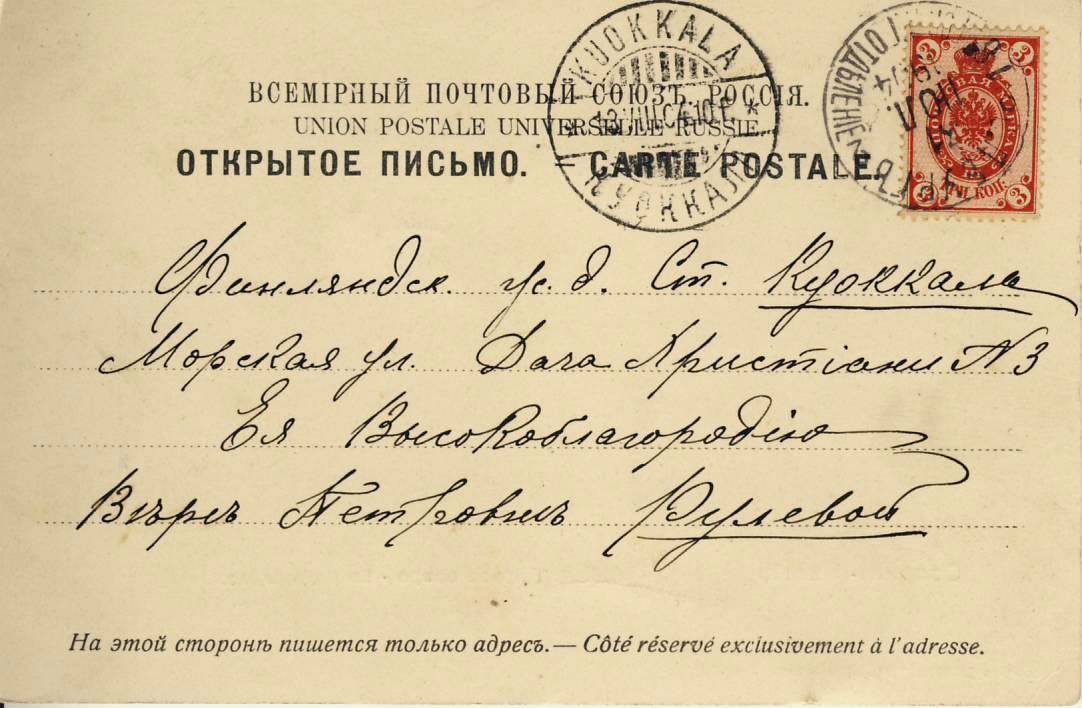 ВСЕМІРНЫЙ ПОЧТОВЫЙ СОЮЗЪ. РОССІЯ.
UNION POSTALE UNIVERSELLE RUSSIE.
ОТКРЫТОЕ ПИСЬМО. CARTE POSTALE.
KUOKKALA
КУОККАЛА
ОТДѢЛЕНІЕ
3 3
ТРИ КОП.
3 3
Финляндск. ж. д. Ст. Куоккала
Морская ул. Дача Христіани N 3
Ея Высокоблагородію
Вѣрѣ Петровнѣ Рулевой
На этой сторонѣ пишется только адресъ. — Côté réservé exclusivement à l'adresse.